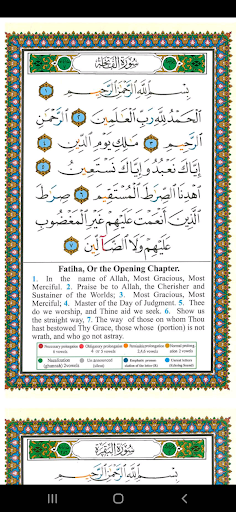 سُورَةُ الْفَاتِحَةِ
بِسْمِ اللَّهِ الرَّحْمَٰنِ الرَّحِيمِ ١
الْحَمْدُ لِلَّهِ رَبِّ الْعَٰلَمِينَ ٢ الرَّحْمَٰنِ
الرَّحِيمِ ٣ مَٰلِكِ يَوْمِ الدِّينِ ٤
إِيَّاكَ نَعْبُدُ وَإِيَّاكَ نَسْتَعِينُ ٥
اهْدِنَا الصِّرَٰطَ الْمُسْتَقِيمَ ٦ صِرَٰطَ
الَّذِينَ أَنْعَمْتَ عَلَيْهِمْ غَيْرِ الْمَغْضُوبِ
عَلَيْهِمْ وَلَا الضَّالِّينَ ٧
Fatiha, Or the Opening Chapter.
1. In the name of Allah, Most Gracious, Most
Merciful. 2. Praise be to Allah, the Cherisher and
Sustainer of the Worlds; 3. Most Gracious, Most
Merciful; 4. Master of the Day of Judgment. 5. Thee
do we worship, and Thine aid we seek. 6. Show us
the straight way, 7. The way of those on whom Thou
hast bestowed Thy Grace, those whose (portion) is not
wrath, and who go not astray.
Necessary prolongation 6 vowels
Obligatory prolongation 4 or 5 vowels
Permissible prolongation 2,4,6 vowels
Normal prolongation 2 vowels
Nazalization (ghunnah) 2 vowels
Un announced (silent)
Emphatic pronunciation of the letter (R)
سُورَةُ الْبَقَرَةِ
بِسْمِ اللَّهِ الرَّحْمَٰنِ الرَّحِيمِ